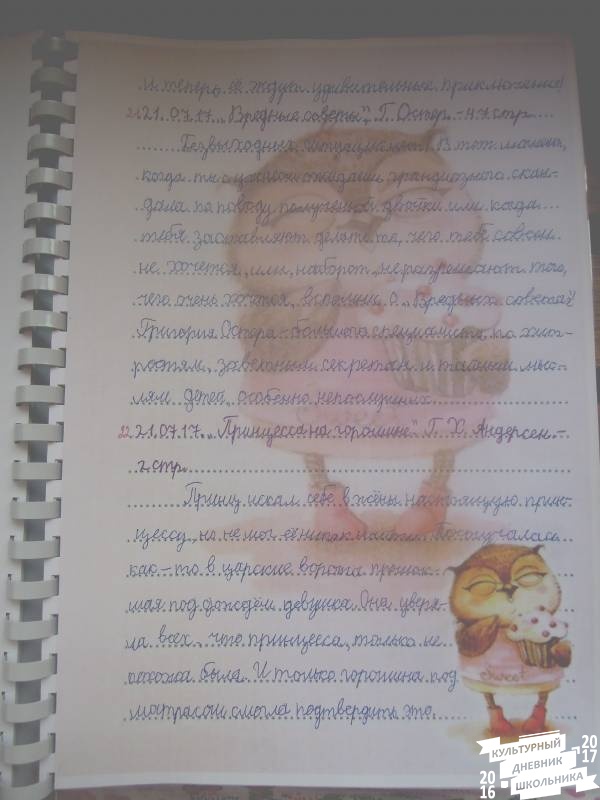 и теперь её ждут удивительные приключения!
21 21.07.17. „Вредные советы", Г. Остер. - 47 стр.
Безвыходных ситуаций нет! В тот момент,
когда ты с ужасом ожидаешь грандиозного скан-
дала по поводу полученной двойки или когда
тебя заставляют делать то, чего тебе совсем
не хочется, или, наоборот, не разрешают того,
чего очень хочется, вспомни о „Вредных советах"
Григория Остера - большого специалиста по хит-
ростям, заветным секретам и тайным мыс-
лям детей, особенно непослушных.
22 21.07.17. „Принцесса на горошине" Г. Х. Андерсен. -
2 стр.
Принц искал себе в жёны настоящую прин-
цессу, но не мог никак найти. Постучалась
как-то в царские ворота промок-
шая под дождём девушка. Она уверя-
ла всех, что принцесса, только не
похожа была. И только горошина под
матрасом смогла подтвердить это.
Sweet
КУЛЬТУРНЫЙ
ДНЕВНИК
ШКОЛЬНИКА
2016
2017